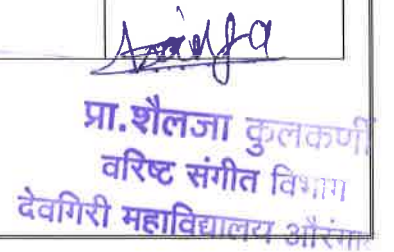 प्रा.शैलजा कुलकर्णी
वरिष्ट संगीत विभाग
देवगिरी महाविद्यालय